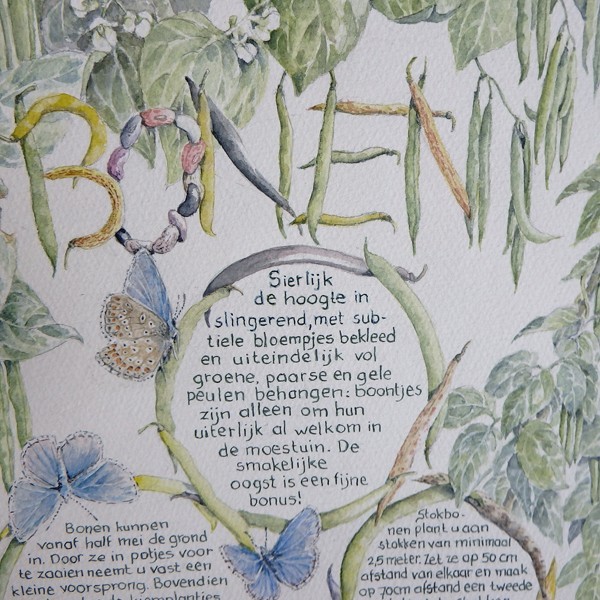 BONEN
Sierlijk
de hoogte in
slingerend, met sub-
tiele bloempjes bekleed
en uiteindelijk vol
groene, paarse en gele
peulen behangen: boontjes
zijn alleen om hun
uiterlijk al welkom in
de moestuin. De
smakelijke
oogst is een fijne
bonus!
Bonen kunnen
vanaf half mei de grond
in. Door ze in potjes voor
te zaaien neemt u vast een
kleine voorsprong. Bovendien
Stokbo-
nen plant u aan
stokken van minimaal
2,5 meter. Zet ze op 50 cm
afstand van elkaar en maak
op 70cm afstand een tweede